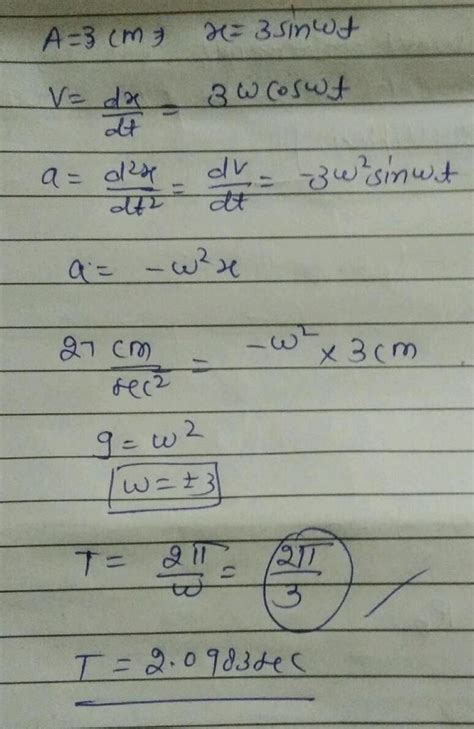 A=3 cm, x=3sinωt
V= dx/dt = 3ωcosωt
a= d²x/dt² = dv/dt = -3ω²sinωt
a= -ω²x
27 cm/sec² = -ω² x 3cm
9=ω²
ω=±3
T= 2π/ω = 2π/3
T=2.0983sec